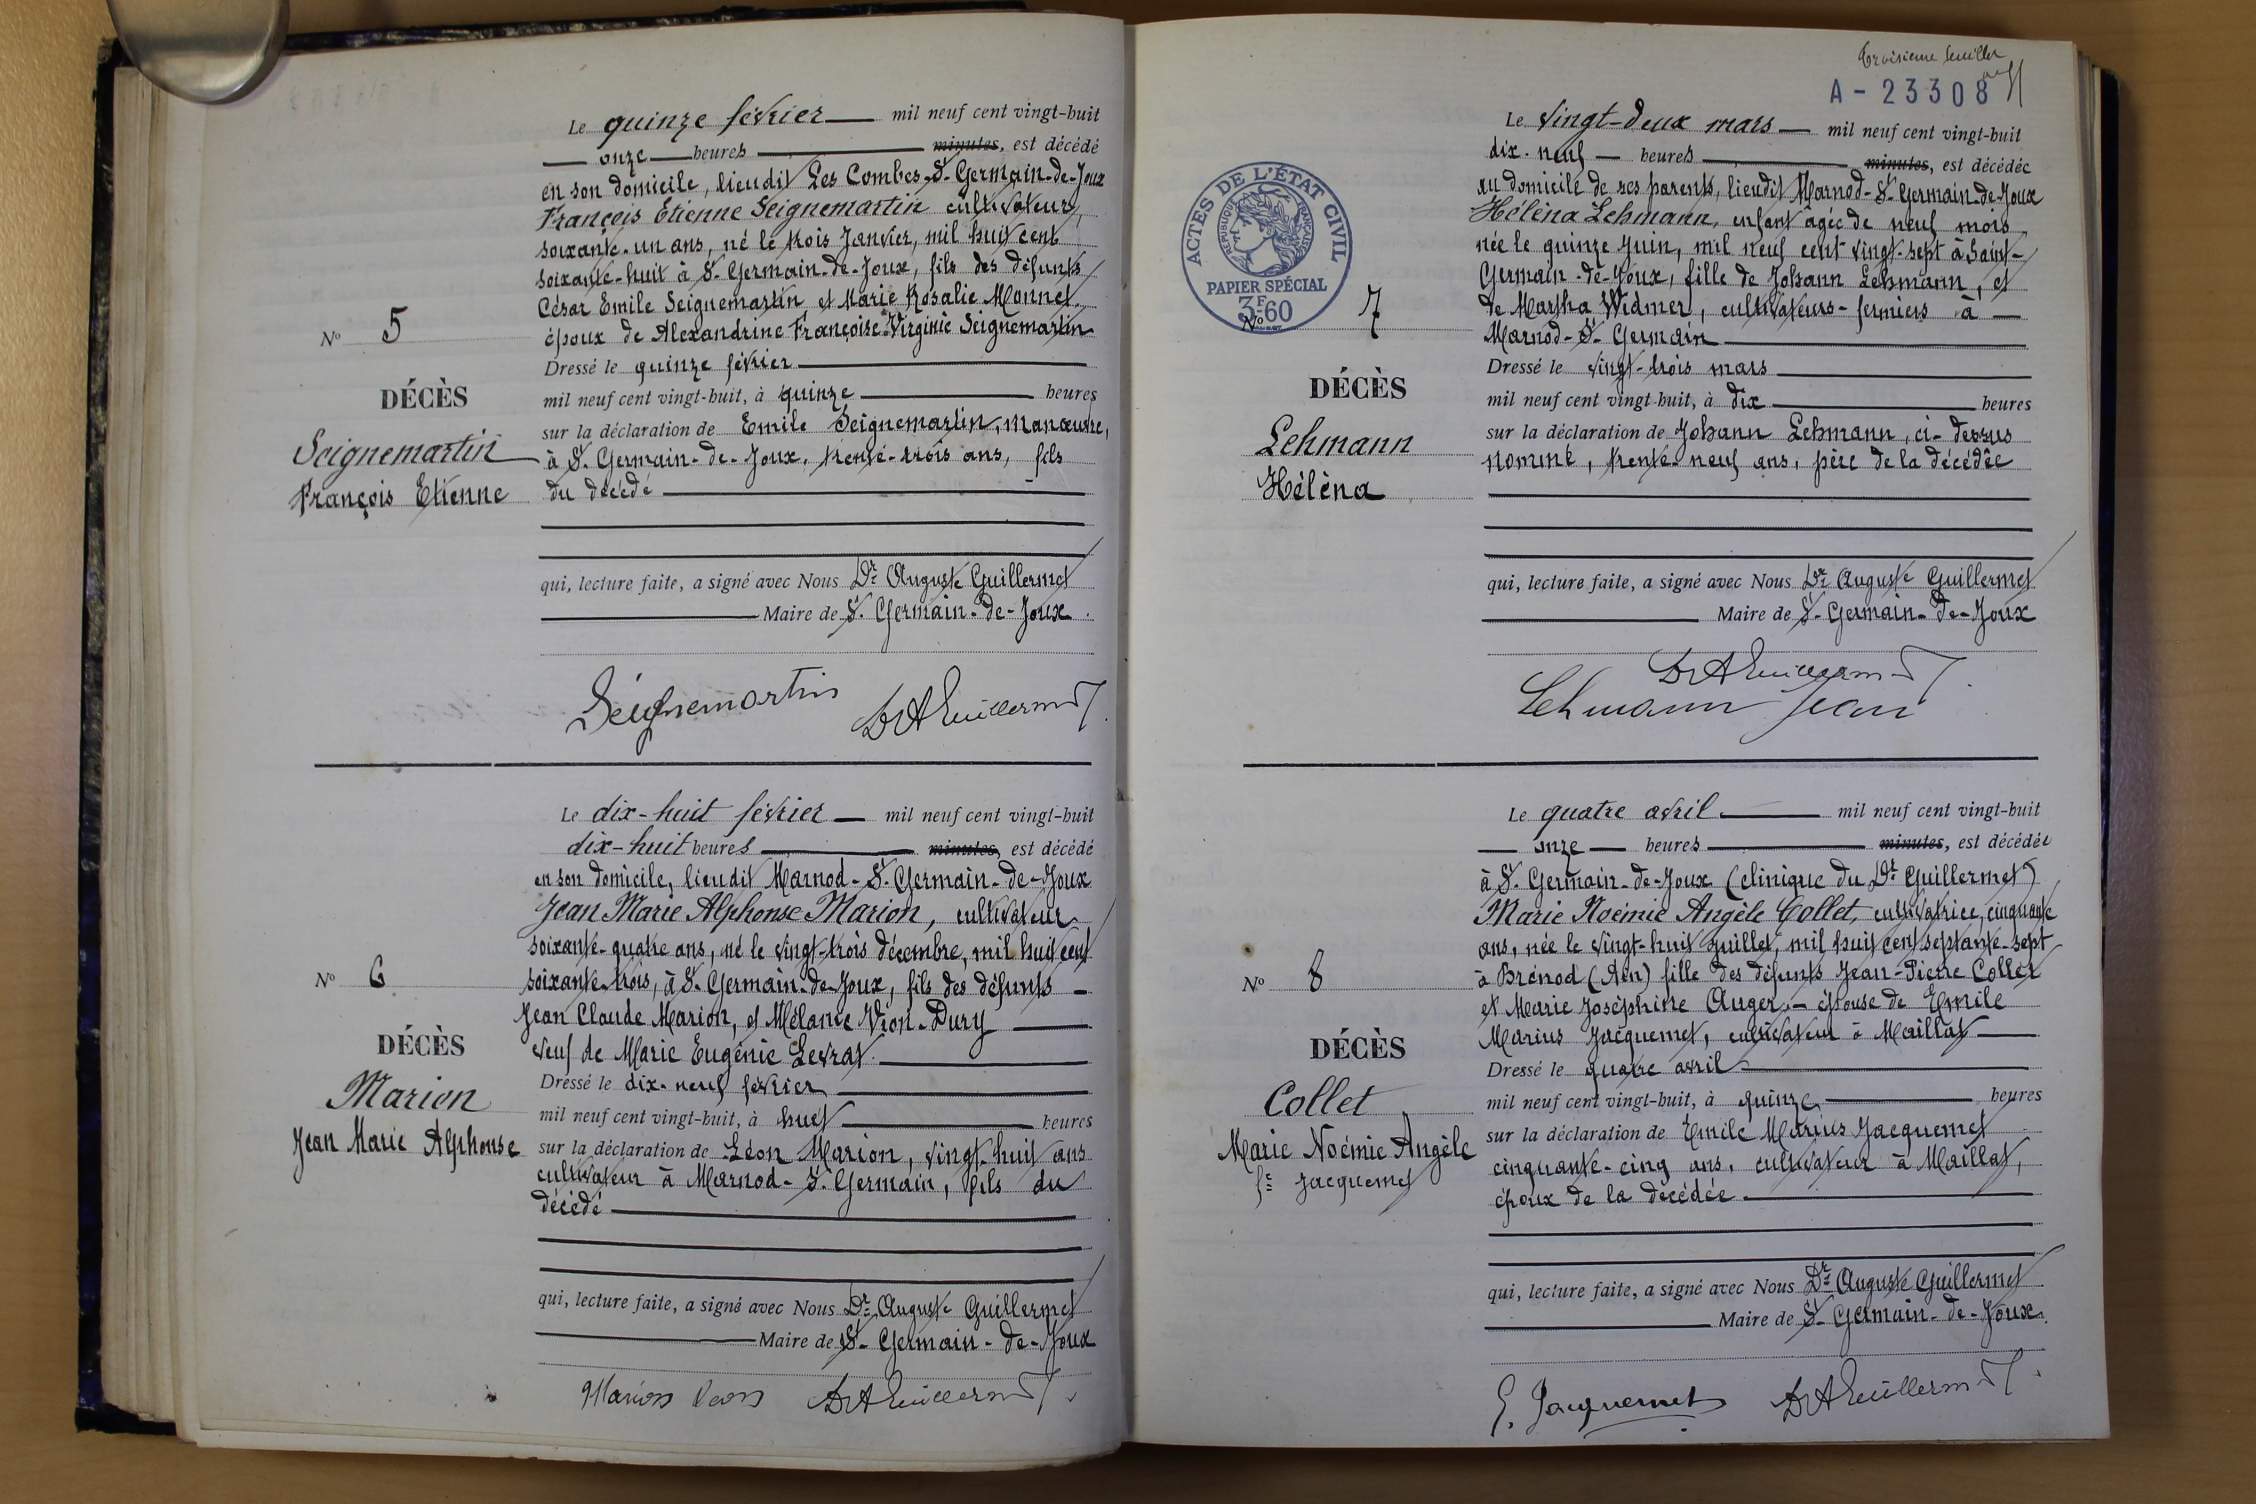 Le quinze février — mil neuf cent vingt-huit
— onze — heures — minutes, est décédé
en son domicile, lieudit Les Combes-St-Germain-de-Joux
François Etienne Seignemartin cultivateur,
soixante-un ans, né le trois Janvier, mil huit cent
soixante-huit à St-Germain-de-Joux, fils des défunts
César Emile Seignemartin et Marie Rosalie Monnet
époux de Alexandrine Françoise Virginie Seignemartin
No 5
DÉCÈS
Seignemartin
François Etienne
Dressé le quinze février
mil neuf cent vingt-huit, à quinze heures
sur la déclaration de Emile Seignemartin, manœuvre,
à St-Germain-de-Joux, trente-trois ans, fils
du décédé
qui, lecture faite, a signé avec Nous Dr Auguste Guillermet
Maire de St-Germain-de-Joux
Seignemartin DrAGuillermet
Le dix-huit février — mil neuf cent vingt-huit
dix-huit heures — minutes, est décédé
en son domicile, lieudit Marnod-St-Germain-de-Joux
Jean Marie Alphonse Marion, cultivateur
soixante-quatre ans, né le vingt-trois décembre, mil huit cent
soixante-trois, à St-Germain-de-Joux, fils des défunts —
Jean Claude Marion, et Mélanie Vion-Dury
veuf de Marie Eugénie Levrat
No 6
DÉCÈS
Marion
Jean Marie Alphonse
Dressé le dix-neuf février
mil neuf cent vingt-huit, à huit heures
sur la déclaration de Léon Marion, vingt-huit ans
cultivateur à Marnod-St-Germain, fils du
décédé
qui, lecture faite, a signé avec Nous Dr Auguste Guillermet
Maire de St-Germain-de-Joux
Marion Léon DrAGuillermet
Troisième feuillet
A-23308
ACTES DE L'ÉTAT CIVIL
RÉPUBLIQUE FRANÇAISE
PAPIER SPÉCIAL
3F60
Le vingt-deux mars — mil neuf cent vingt-huit
dix-neuf — heures — minutes, est décédée
au domicile de ses parents, lieudit Marnod-St-Germain-de-Joux
Hélèna Lehmann, enfant âgée de neuf mois
née le quinze Juin, mil neuf cent vingt-sept à Saint-
Germain-de-Joux, fille de Johann Lehmann, et
de Martha Widmer, cultivateurs-fermiers à —
Marnod-St-Germain
No 7
DÉCÈS
Lehmann
Hélèna
Dressé le vingt-trois mars
mil neuf cent vingt-huit, à dix heures
sur la déclaration de Johann Lehmann, ci-dessus
nommé, trente-neuf ans, père de la décédée
qui, lecture faite, a signé avec Nous Dr Auguste Guillermet
Maire de St-Germain-de-Joux
DrAGuillermet
Lehmann Jean
Le quatre avril — mil neuf cent vingt-huit
— onze — heures — minutes, est décédée
à St-Germain-de-Joux (clinique du Dr Guillermet)
Marie Noémie Angèle Collet, cultivatrice, cinquante
ans, née le vingt-huit juillet, mil huit cent septante-sept
à Brénod (Ain) fille des défunts Jean-Pierre Collet
et Marie Joséphine Auger, — épouse de Emile
Marius Jacquemet, cultivateur à Maillat
No 8
DÉCÈS
Collet
Marie Noémie Angèle
fe Jacquemet
Dressé le quatre avril
mil neuf cent vingt-huit, à quinze heures
sur la déclaration de Emile Marius Jacquemet
cinquante-cinq ans, cultivateur à Maillat,
époux de la décédée
qui, lecture faite, a signé avec Nous Dr Auguste Guillermet
Maire de St-Germain-de-Joux.
E. Jacquemet DrAGuillermet